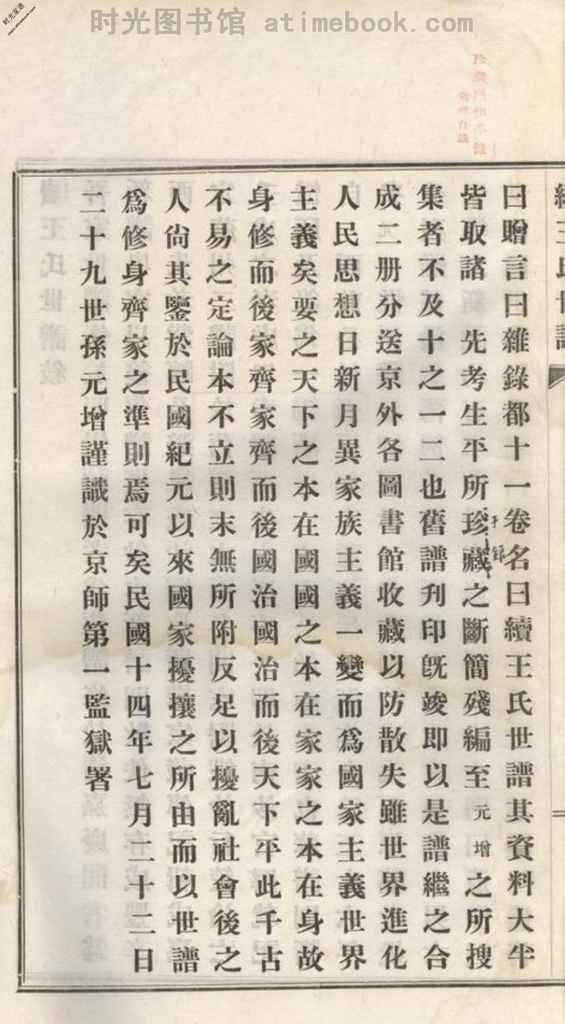 时光图书馆 atimebook.com
曰贈言曰雜錄都十一卷名曰續王氏世譜其資料大半
皆取諸 先考生平所珍藏之斷簡殘編至元增之所搜
集者不及十之一二也舊譜刋印旣竣即以是譜繼之合
成二册分送京外各圖書館收藏以防散失雖世界進化
人民思想日新月異家族主義一變而爲國家主義世界
主義矣要之天下之本在國國之本在家家之本在身故
身修而後家齊家齊而後國治國治而後天下平此千古
不易之定論本不立則末無所附反足以擾亂社會後之
人尙其鑒於民國紀元以來國家擾攘之所由而以世譜
爲修身齊家之準則焉可矣民國十四年七月二十二日
二十九世孫元增謹識於京師第一監獄署